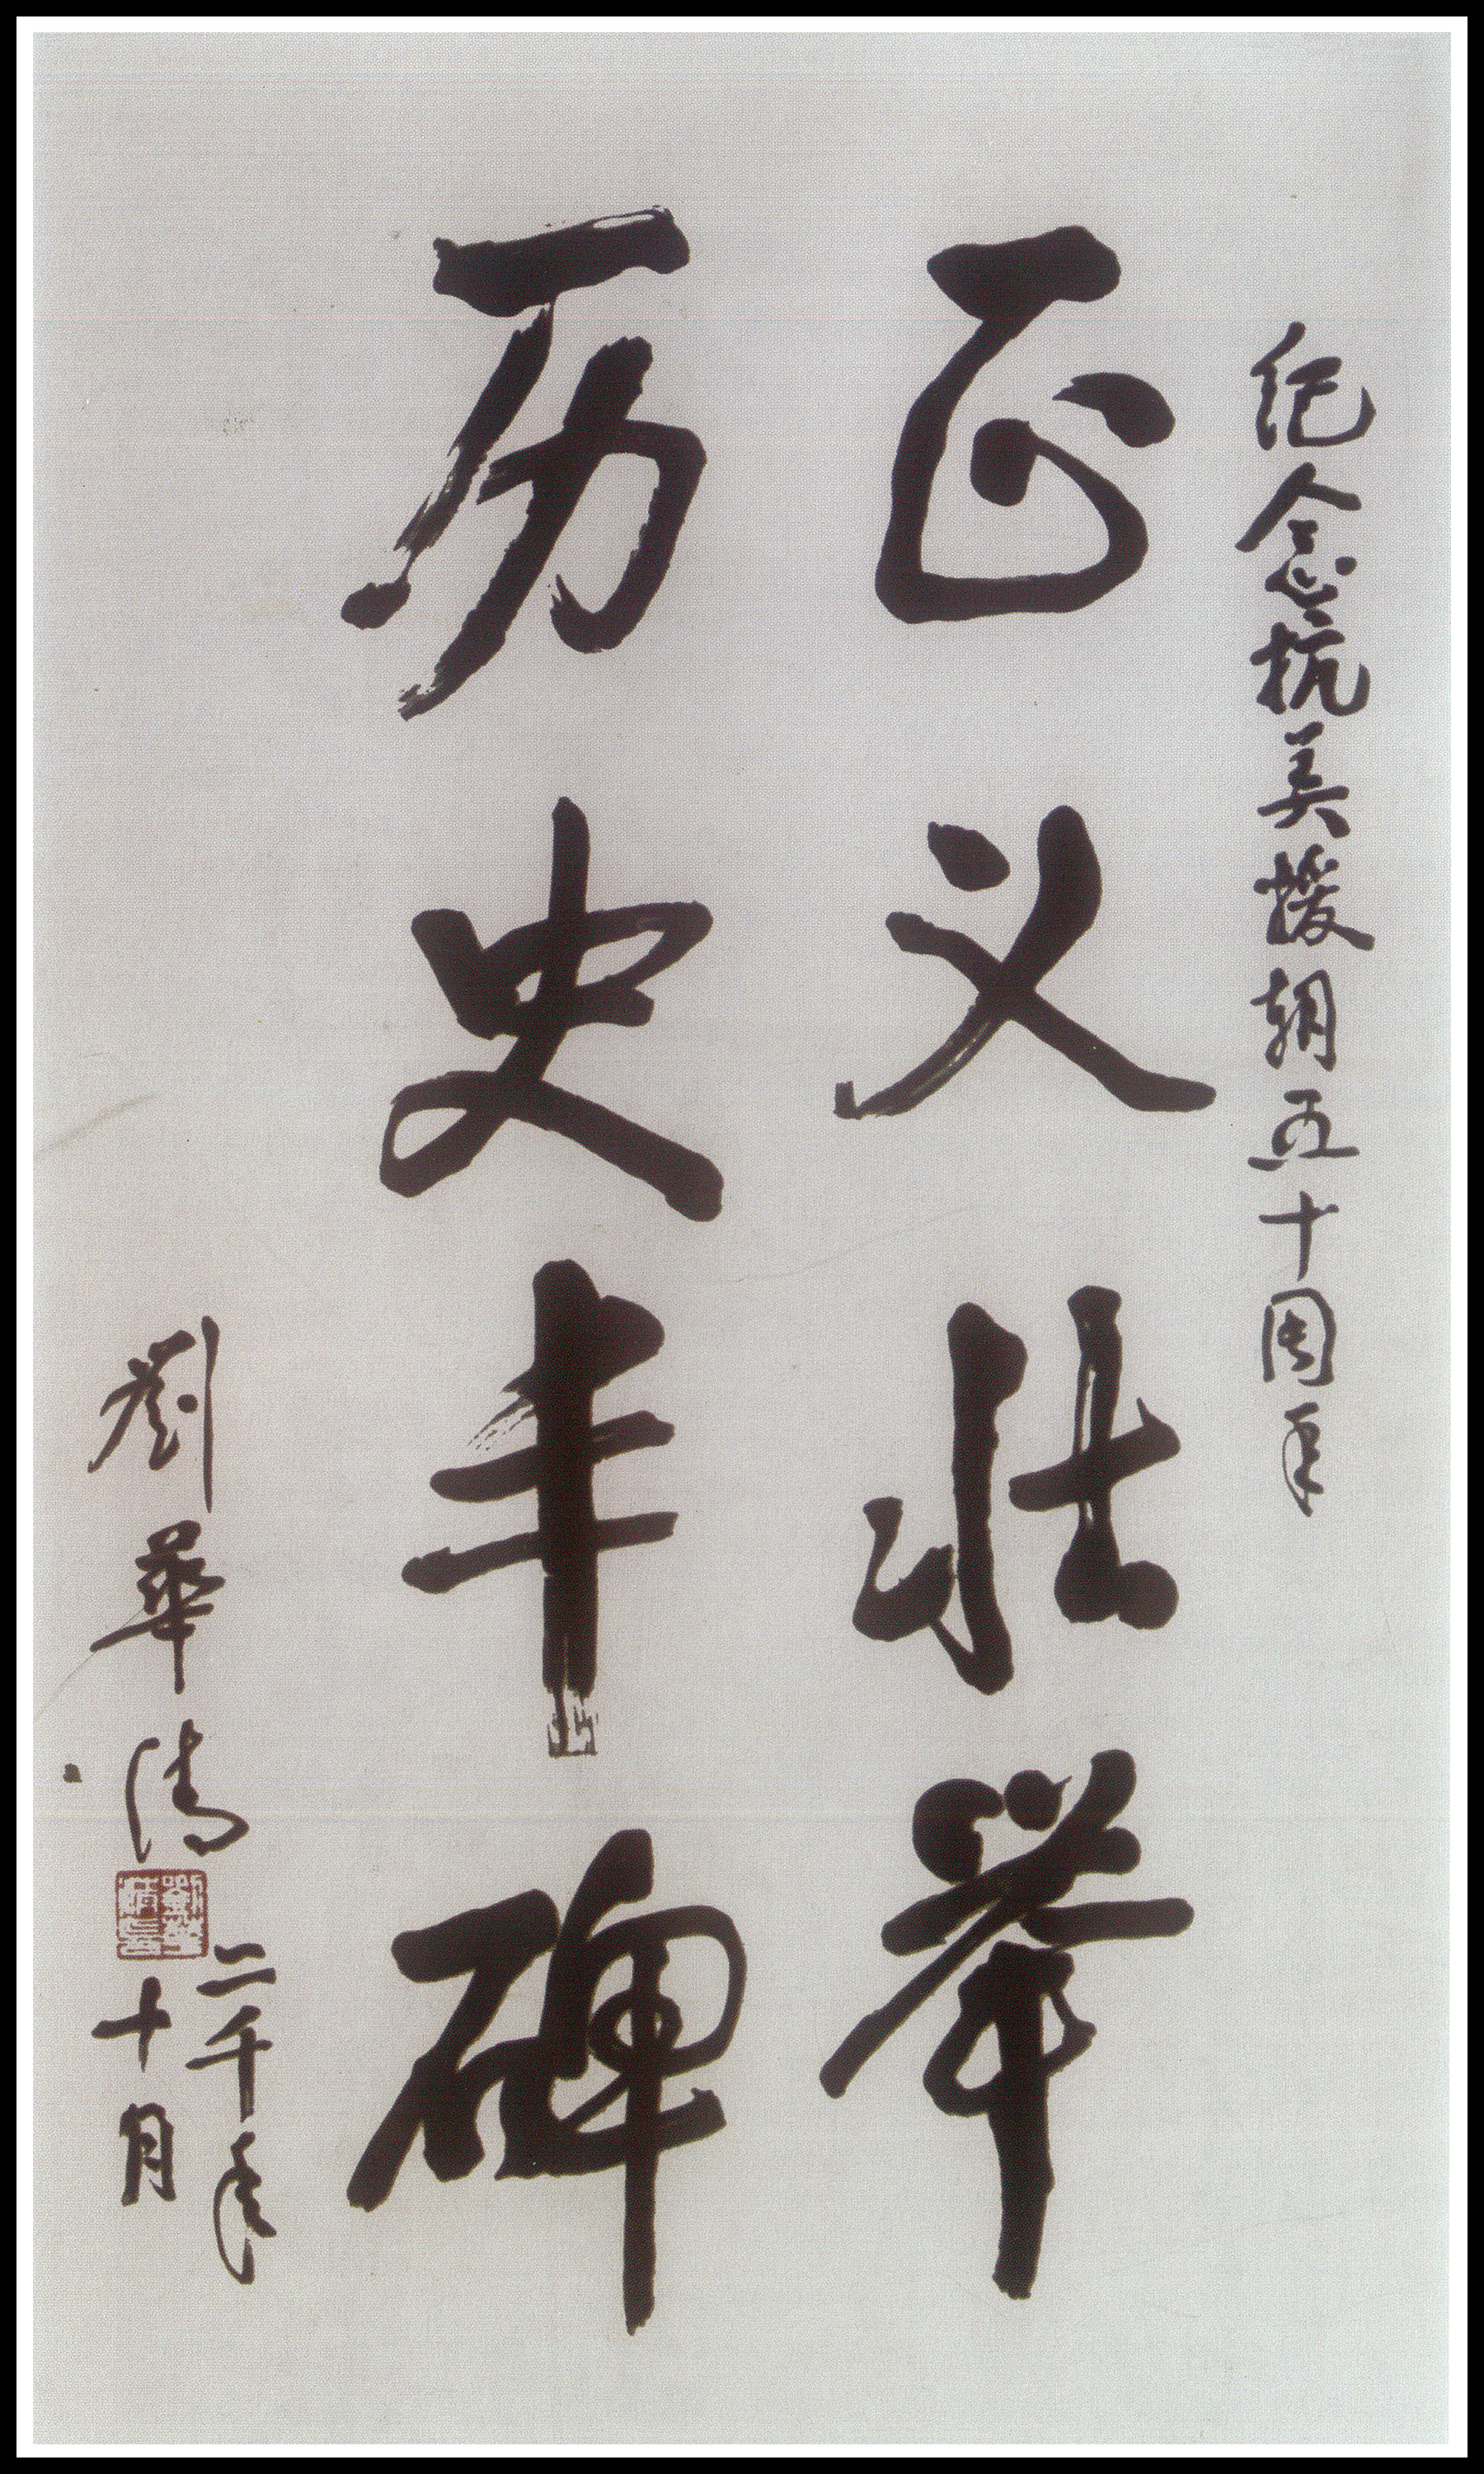 纪念抗美援朝五十周年
正义壮举
历史丰碑
劉華清
二千年
十月